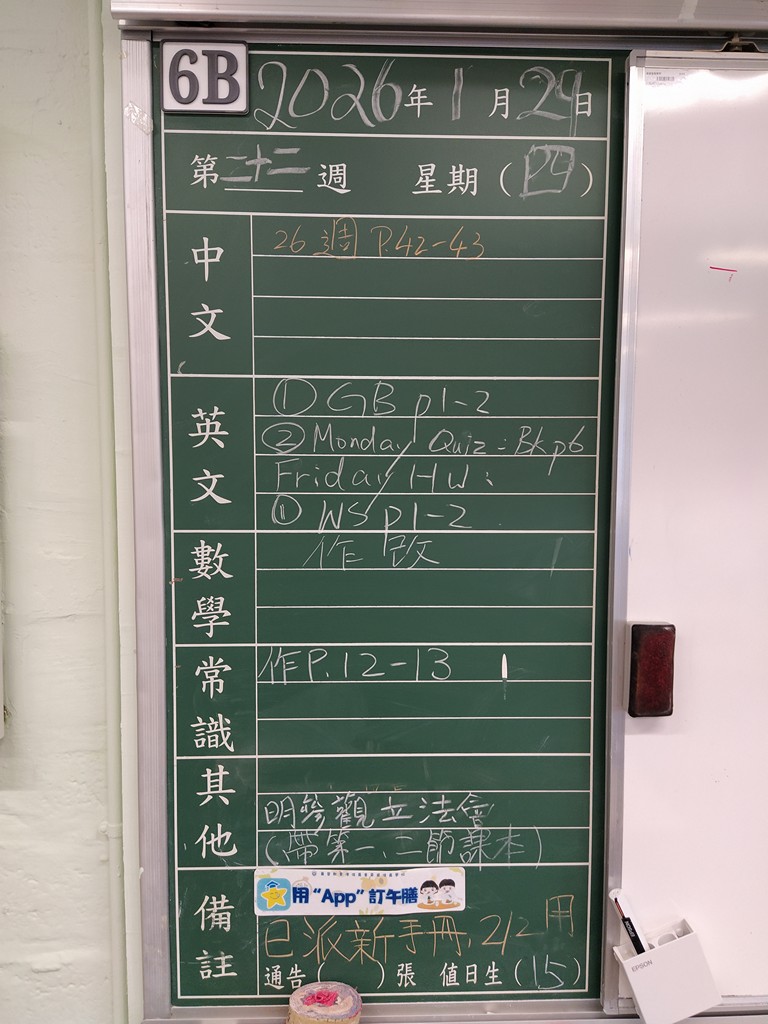 6B 2026年1月29日
第二十二週 星期(四)
中文
26週 P.42-43
英文
① GB p1-2
② Monday Quiz: Bk p6
Friday HW:
① WS p1-2
數學
作改
常識
作P.12-13
其他
明參觀立法會
(帶第一、二節課本)
備註
用“App”訂午膳
已派新手冊, 2/2用
通告( )張 值日生(15)
EPSON